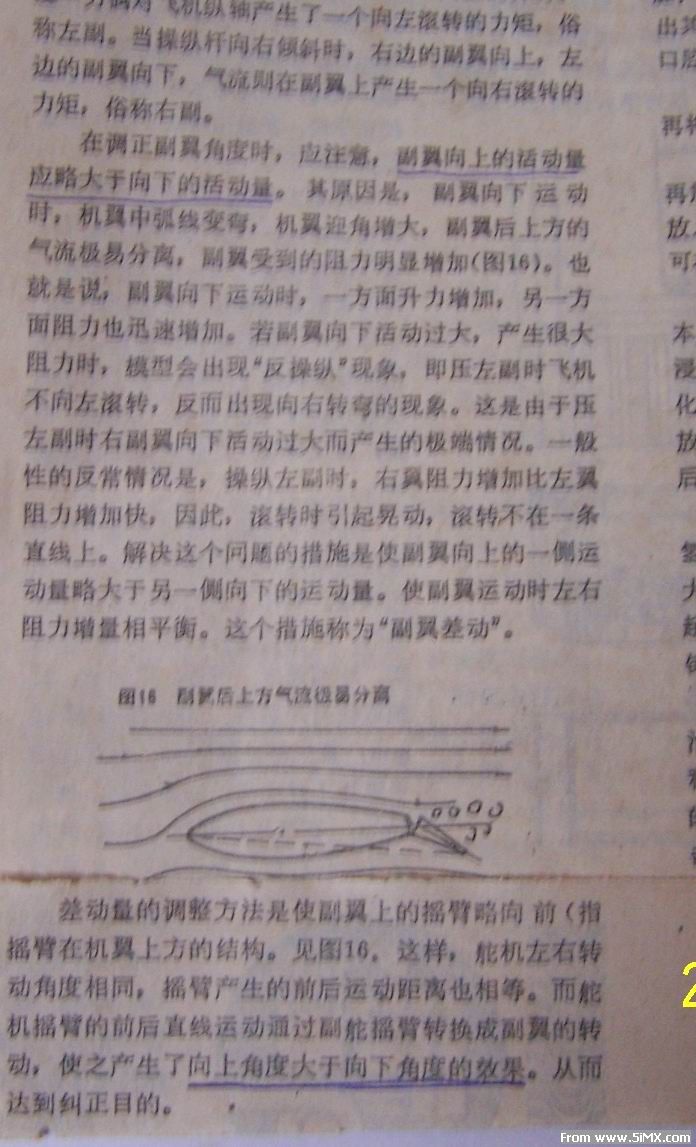 力偶对飞机纵轴产生了一个向左滚转的力矩，俗
称左副。当操纵杆向右倾斜时，右边的副翼向上，左
边的副翼向下，气流则在副翼上产生一个向右滚转的
力矩，俗称右副。
在调正副翼角度时，应注意，副翼向上的活动量
应略大于向下的活动量。其原因是，副翼向下运动
时，机翼中弧线变弯，机翼迎角增大，副翼后上方的
气流极易分离，副翼受到的阻力明显增加(图16)。也
就是说，副翼向下运动时，一方面升力增加，另一方
面阻力也迅速增加。若副翼向下活动过大，产生很大
阻力时，模型会出现“反操纵”现象，即压左副时飞机
不向左滚转，反而出现向右转弯的现象。这是由于压
左副时右副翼向下活动过大而产生的极端情况。一般
性的反常情况是，操纵左副时，右翼阻力增加比左翼
阻力增加快，因此，滚转时引起晃动，滚转不在一条
直线上。解决这个问题的措施是使副翼向上的一侧运
动量略大于另一侧向下的运动量。使副翼运动时左右
阻力增量相平衡。这个措施称为“副翼差动”。
图16 副翼后上方气流极易分离
差动量的调整方法是使副翼上的摇臂略向前（指
摇臂在机翼上方的结构。见图16。这样，舵机左右转
动角度相同，摇臂产生的前后运动距离也相等。而舵
机摇臂的前后直线运动通过副舵摇臂转换成副翼的转
动，使之产生了向上角度大于向下角度的效果。从而
达到纠正目的。
口腔
再将
放
可
本
浸
化
放
后
氢
2
From www.5iMX.com